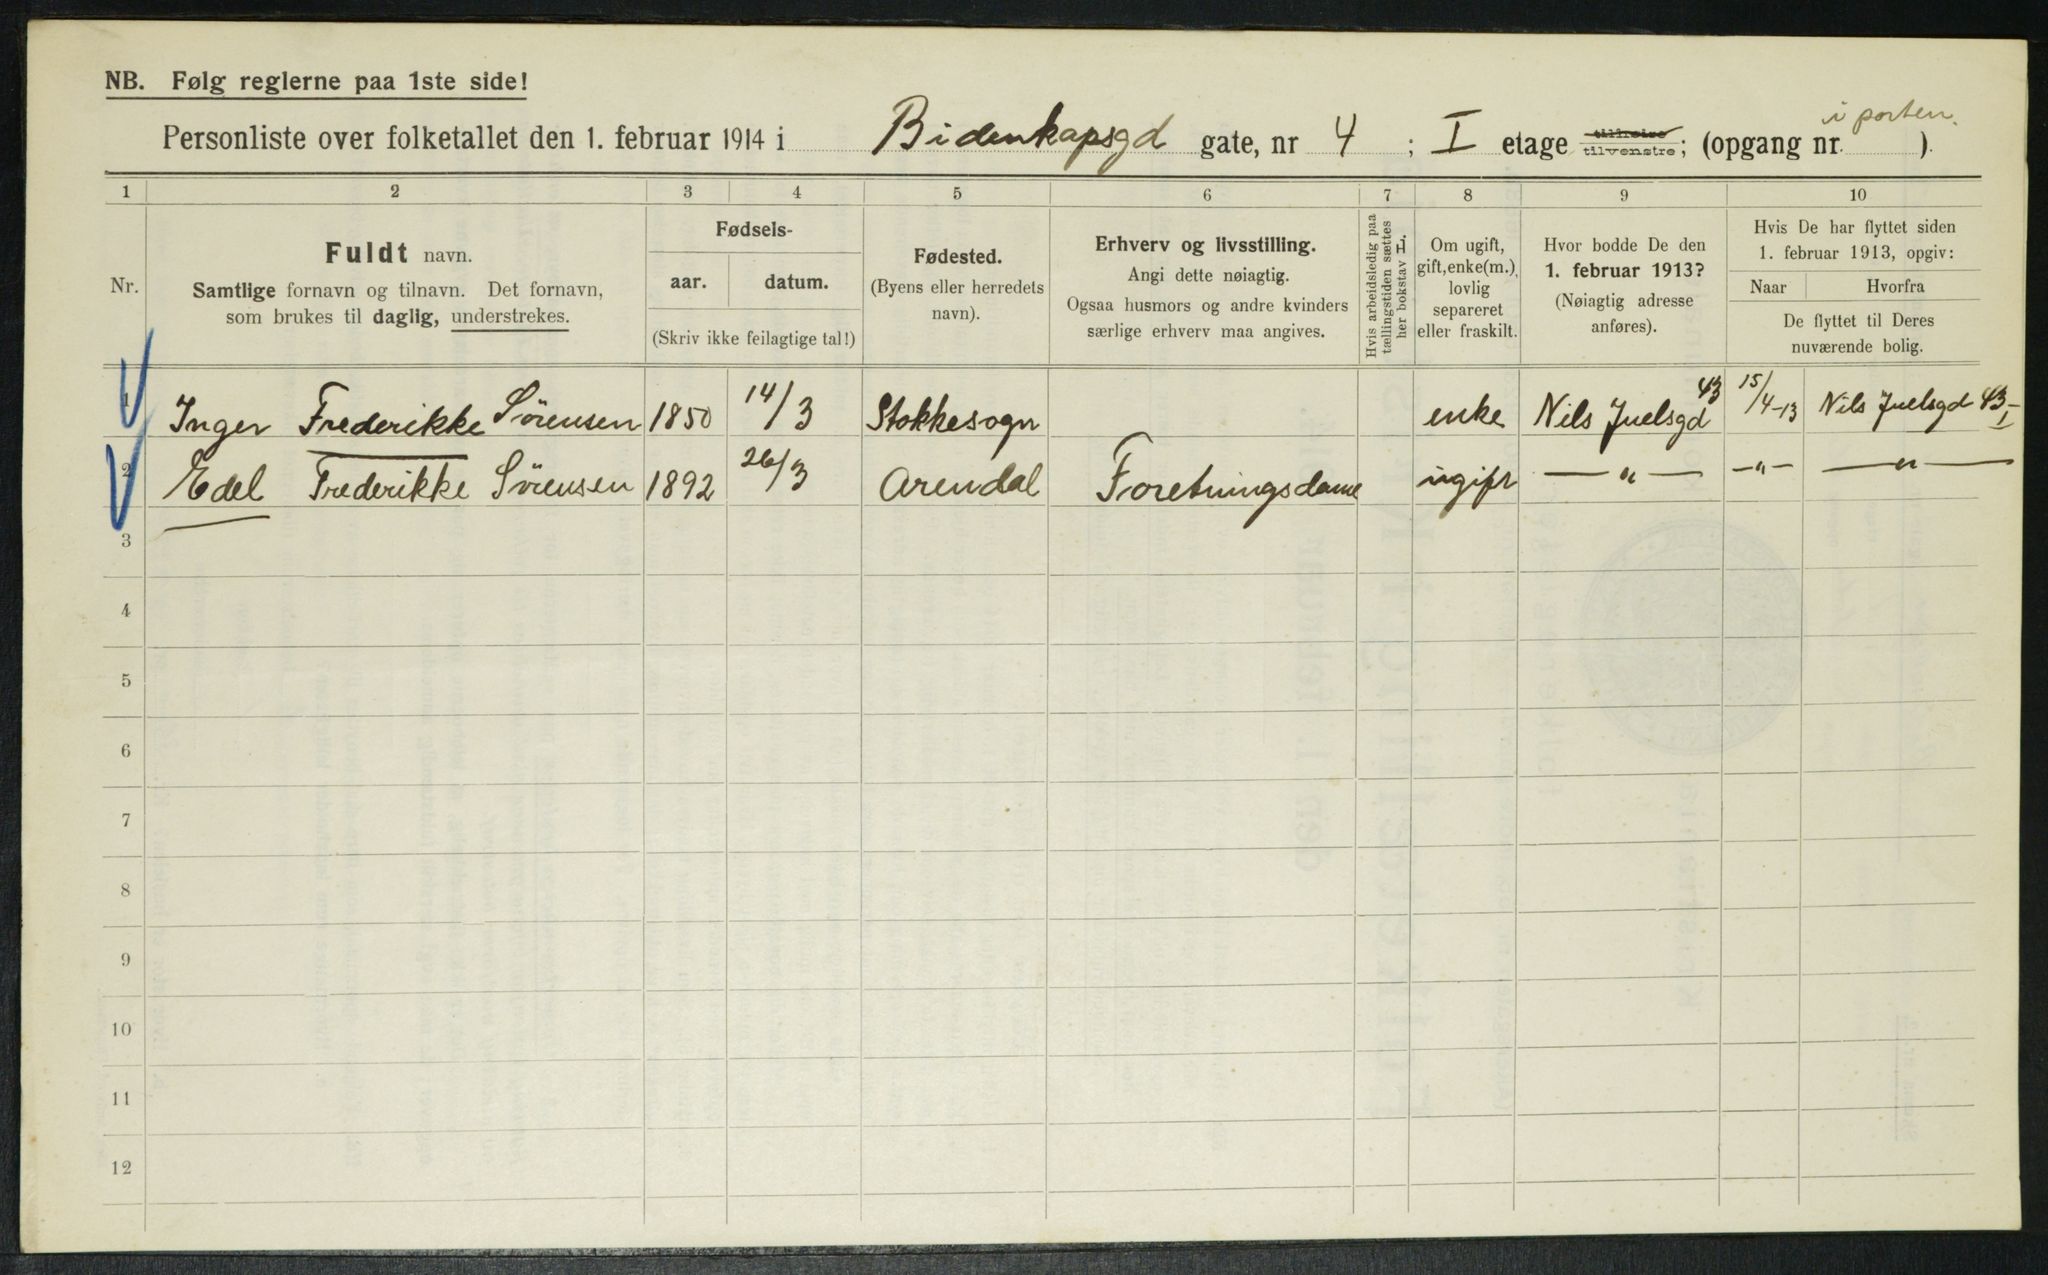 NB. Følg reglerne paa 1ste side!
i porten.
Personliste over folketallet den 1. februar 1914 i Bidenkapsgd gate, nr 4 ; I etage tilhøire tilvenstre; (opgang nr. ).
1 2 3 4 5 6 7 8 9 10
Nr.
Fuldt navn.
Samtlige fornavn og tilnavn. Det fornavn,
som brukes til daglig, understrekes.
Fødsels-
aar. datum.
(Skriv ikke feilagtige tal!)
Fødested.
(Byens eller herredets
navn).
Erhverv og livsstilling.
Angi dette nøiagtig.
Ogsaa husmors og andre kvinders
særlige erhverv maa angives.
Hvis arbeidsledig paa
tællingstiden sættes
her bokstav L.
Om ugift,
gift, enke(m.),
lovlig
separeret
eller fraskilt.
Hvor bodde De den
1. februar 1913?
(Nøiagtig adresse
anføres).
Hvis De har flyttet siden
1. februar 1913, opgiv:
Naar Hvorfra
De flyttet til Deres
nuværende bolig.
1 Inger Frederikke Sörensen 1850 14/3 Stokkesogn enke Nils Juelsgd 43 15/4-13 Nils Juelsgd 43-I
2 Edel Frederikke Sörensen 1892 26/3 Arendal Foretningsdame ugift — " — — " — — " —
3
4
5
6
7
8
9
10
11
12